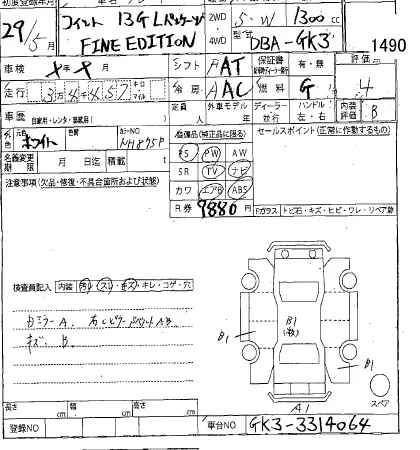 初度登録年月
29/5月
フィット 13G Lパッケージ
FINE EDITION
2WD
4WD
5・W
1300cc
型式
DBA-GK3
1490
車検
年 月
シフト
FAT
保証書
有・無
評価
4
走行
3 4 4 5 7
キロ
マイル
冷房
AAC
燃料
G
内装評価
B
車歴
自家用・レンタ・事業用( )
定員
人
外車モデル
年
ディーラー
並行
ハンドル
左・右
外色
元色
ホワイト
色替
カラーNO
NH875P
装備品(純正品に限る)
セールスポイント(正常に作動するもの)
名義変更期限
月 日迄
積載
t
PS PW AW
SR TV ナビ
カワ エアB ABS
R券 9880円
注意事項(欠品・修復・不具合箇所および状態)
Fガラス
トビ石・キズ・ヒビ・ワレ・リペア跡
検査員記入
内装
スレ・キズ・キレ・コゲ・穴
右ミラーA. 右Cピラー AB.
キズ B
B1
B1
B1
A1
スペア
長さ cm
幅 cm
高さ cm
登録NO
車台NO
GK3-3314064